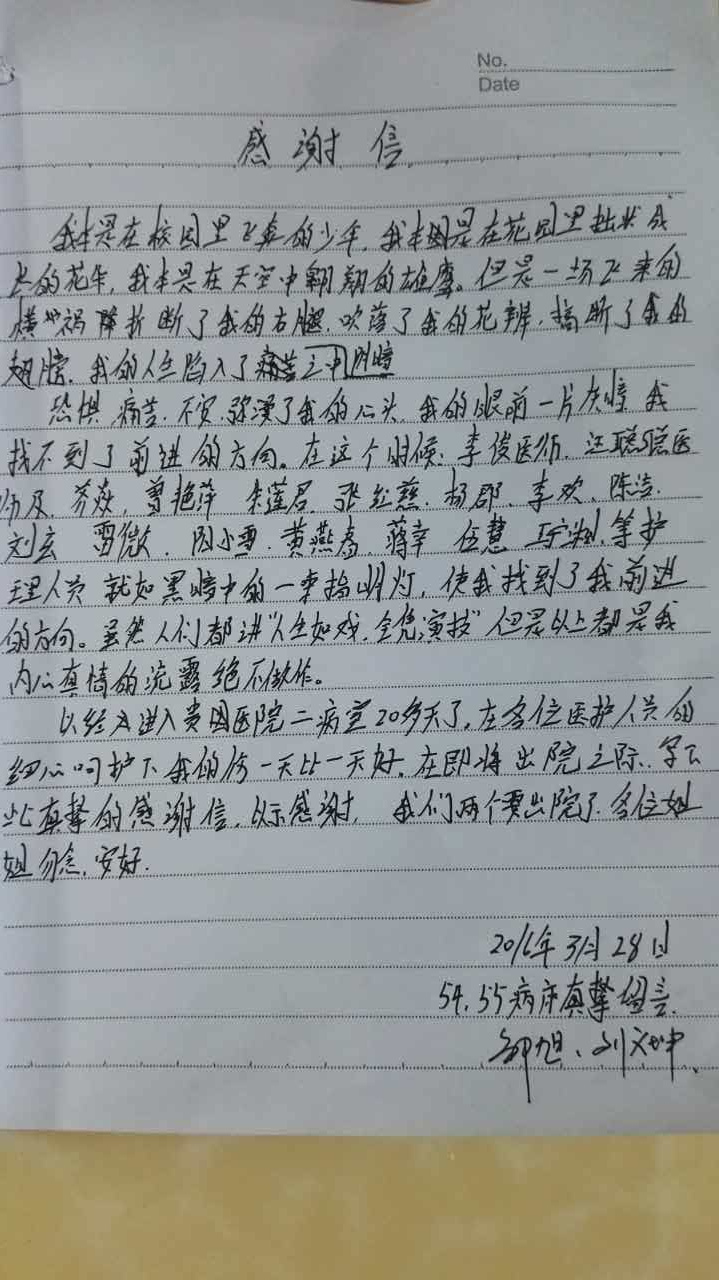 No.
Date
感谢信
我本是在校园里飞奔的少年,我本是在花园里茁壮成
长的花朵,我本是在天空中翱翔的雄鹰。但是一场飞来的
横祸降折断了我的右腿,吹落了我的花瓣,搞断了我的
翅膀,我的人生陷入了痛苦之中
恐惧、病苦、不安、弥漫了我的心头,我的眼前一片灰暗,我
找不到了前进的方向。在这个时候,李俊医师、汪聪聪医
师及 曾艳萍 朱莲君、张红慈、杨郡、李欢、陈洁、
刘玄 雷微、周小雪、黄燕春、蒋幸 伍慧 等护
理人员 就如黑暗中的一束指明灯,使我找到了我前进
的方向。虽然人们都讲“人生如戏,全凭演技”但是以上都是我
内心真情的流露绝不做作。
以经进入贵医院二病室20多天了,在各位医护人员的
细心呵护下我的伤一天比一天好,在即将出院之际,写下
此真挚的感谢信,以示感谢, 我们两个要出院了,各位姐
姐勿念,安好.
2016年3月28日
54,55病床真挚留言.
邹旭、刘文坤